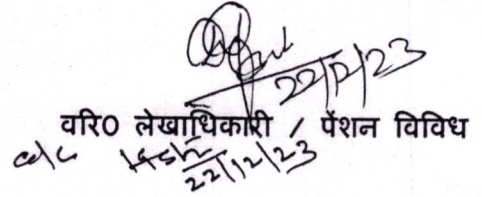 22/12/23
वरि0 लेखाधिकारी / पेंशन विविध
22/12/23